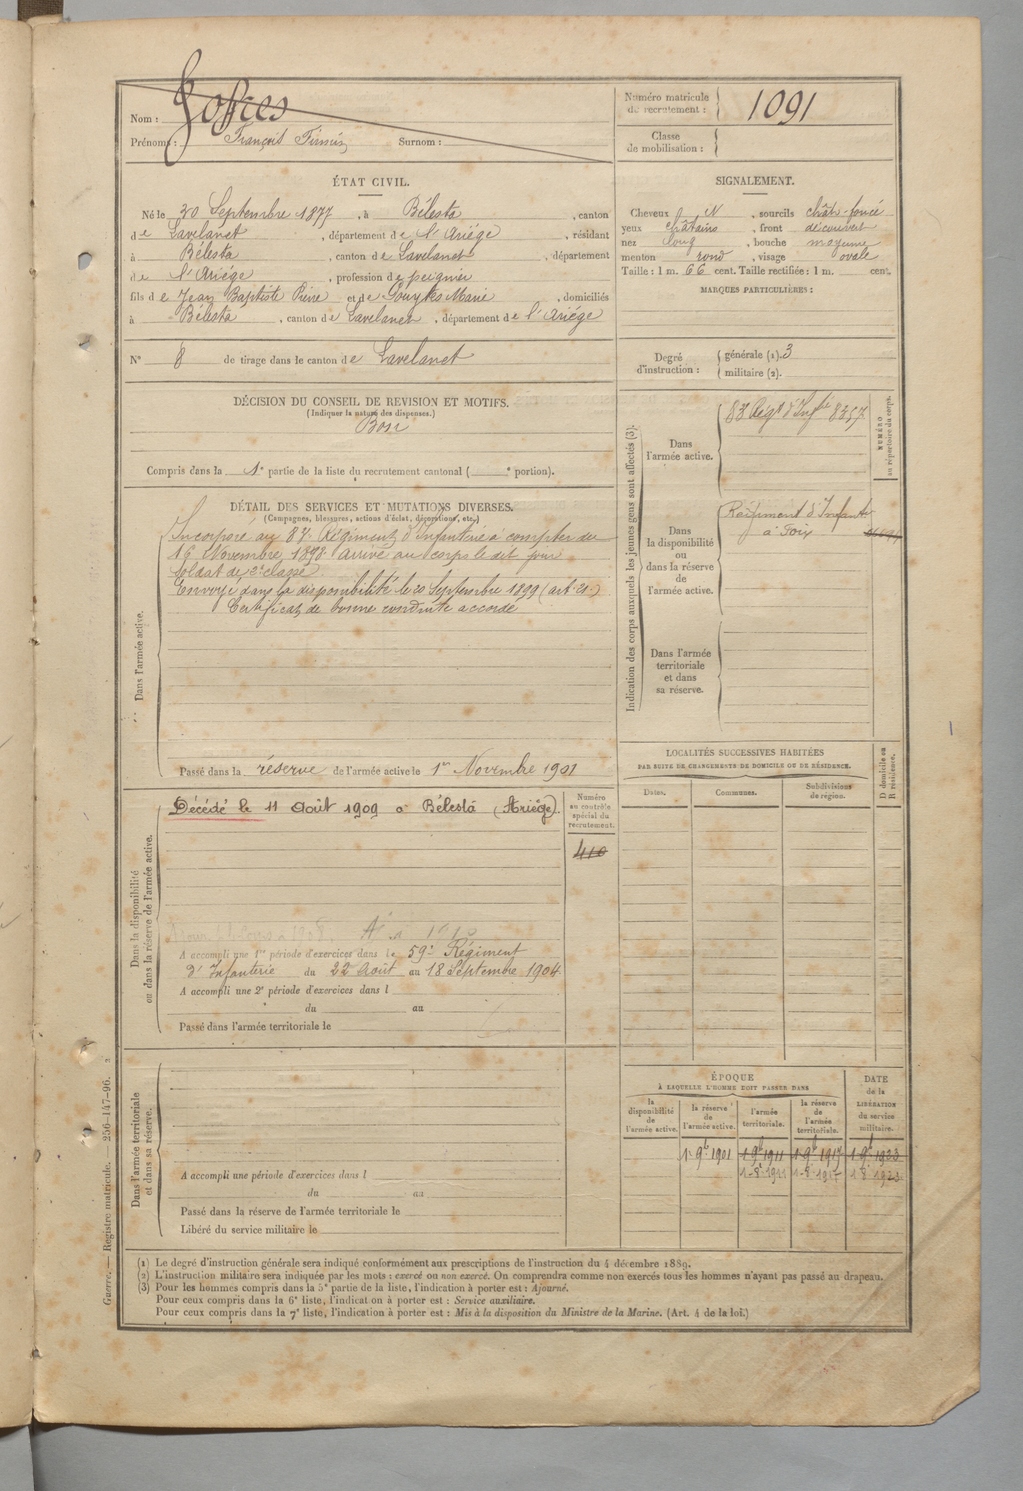 Nom :
Prénoms : François Firmin Surnom :
Numéro matricule
du recrutement : 1091
Classe
de mobilisation :
ÉTAT CIVIL.
Né le 30 Septembre 1877, à Bélesta, canton
de Lavelanet, département de l'Ariège, résidant
à Bélesta, canton de Lavelanet, département
de l'Ariège, profession de peignier
fils de Jean Baptiste Pierre et de Marie, domiciliés
à Bélesta, canton de Lavelanet, département de l'Ariège
N° 8 de tirage dans le canton de Lavelanet
SIGNALEMENT.
Cheveux N, sourcils chât-foncé
yeux châtains, front découvert
nez long, bouche moyenne
menton rond, visage ovale
Taille : 1 m. 66 cent. Taille rectifiée : 1 m. cent.
MARQUES PARTICULIÈRES :
Degré
d'instruction :
générale (1). 3
militaire (2).
DÉCISION DU CONSEIL DE REVISION ET MOTIFS.
(Indiquer la nature des dispenses.)
Bon
Compris dans la 1e partie de la liste du recrutement cantonal ( e portion).
DÉTAIL DES SERVICES ET MUTATIONS DIVERSES.
(Campagnes, blessures, actions d'éclat, décorations, etc.)
Dans l'armée active.
Incorporé au 83e Régiment d'Infanterie à compter du
16 Novembre 1898 arrivé au corps le dit jour
soldat de 2e classe
Envoyé dans la disponibilité le 20 Septembre 1899 (art. 21.)
Certificat de bonne conduite accordé
Passé dans la réserve de l'armée active le 1er Novembre 1901
Indication des corps auxquels les jeunes gens sont affectés (3).
Dans
l'armée active.
83e Régt d'Infie 8357
NUMÉRO
au répertoire du corps.
Dans
la disponibilité
ou
dans la réserve
de
l'armée active.
Régiment d'Infante
à Foix
Dans l'armée
territoriale
et dans
sa réserve.
LOCALITÉS SUCCESSIVES HABITÉES
PAR SUITE DE CHANGEMENTS DE DOMICILE OU DE RÉSIDENCE.
Dates.
Communes.
Subdivisions
de région.
D domicile ou
R résidence.
Dans la disponibilité
ou dans la réserve de l'armée active.
Décédé le 11 Août 1909 à Bélesta (Ariège).
Numéro
au contrôle
spécial du
recrutement.
410
A accompli une 1re période d'exercices dans le 59e Régiment
d'Infanterie du 22 Août au 18 Septembre 1904
A accompli une 2e période d'exercices dans l
du au
Passé dans l'armée territoriale le
Dans l'armée territoriale
et dans sa réserve.
A accompli une période d'exercices dans l
du au
Passé dans la réserve de l'armée territoriale le
Libéré du service militaire le
ÉPOQUE
À LAQUELLE L'HOMME DOIT PASSER DANS
la
disponibilité
de
l'armée active.
la réserve
de
l'armée active.
l'armée
territoriale.
la réserve
de
l'armée
territoriale.
DATE
de la
LIBÉRATION
du service
militaire.
1-9b 1901 1-9b 1911 1-9b 1917 1-9b 1923
1-8e 1911 1-8e 1917 1 8e 1923
(1) Le degré d'instruction générale sera indiqué conformément aux prescriptions de l'instruction du 4 décembre 1889.
(2) L'instruction militaire sera indiquée par les mots : exercé ou non exercé. On comprendra comme non exercés tous les hommes n'ayant pas passé au drapeau.
(3) Pour les hommes compris dans la 5e partie de la liste, l'indication à porter est : Ajourné.
Pour ceux compris dans la 6e liste, l'indication à porter est : Service auxiliaire.
Pour ceux compris dans la 7e liste, l'indication à porter est : Mis à la disposition du Ministre de la Marine. (Art. 4 de la loi.)
Guerre. — Registre matricule. — 256-147-96.